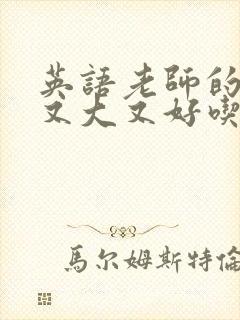 英語老師的
又大又好喫
馬尔姆斯特倫